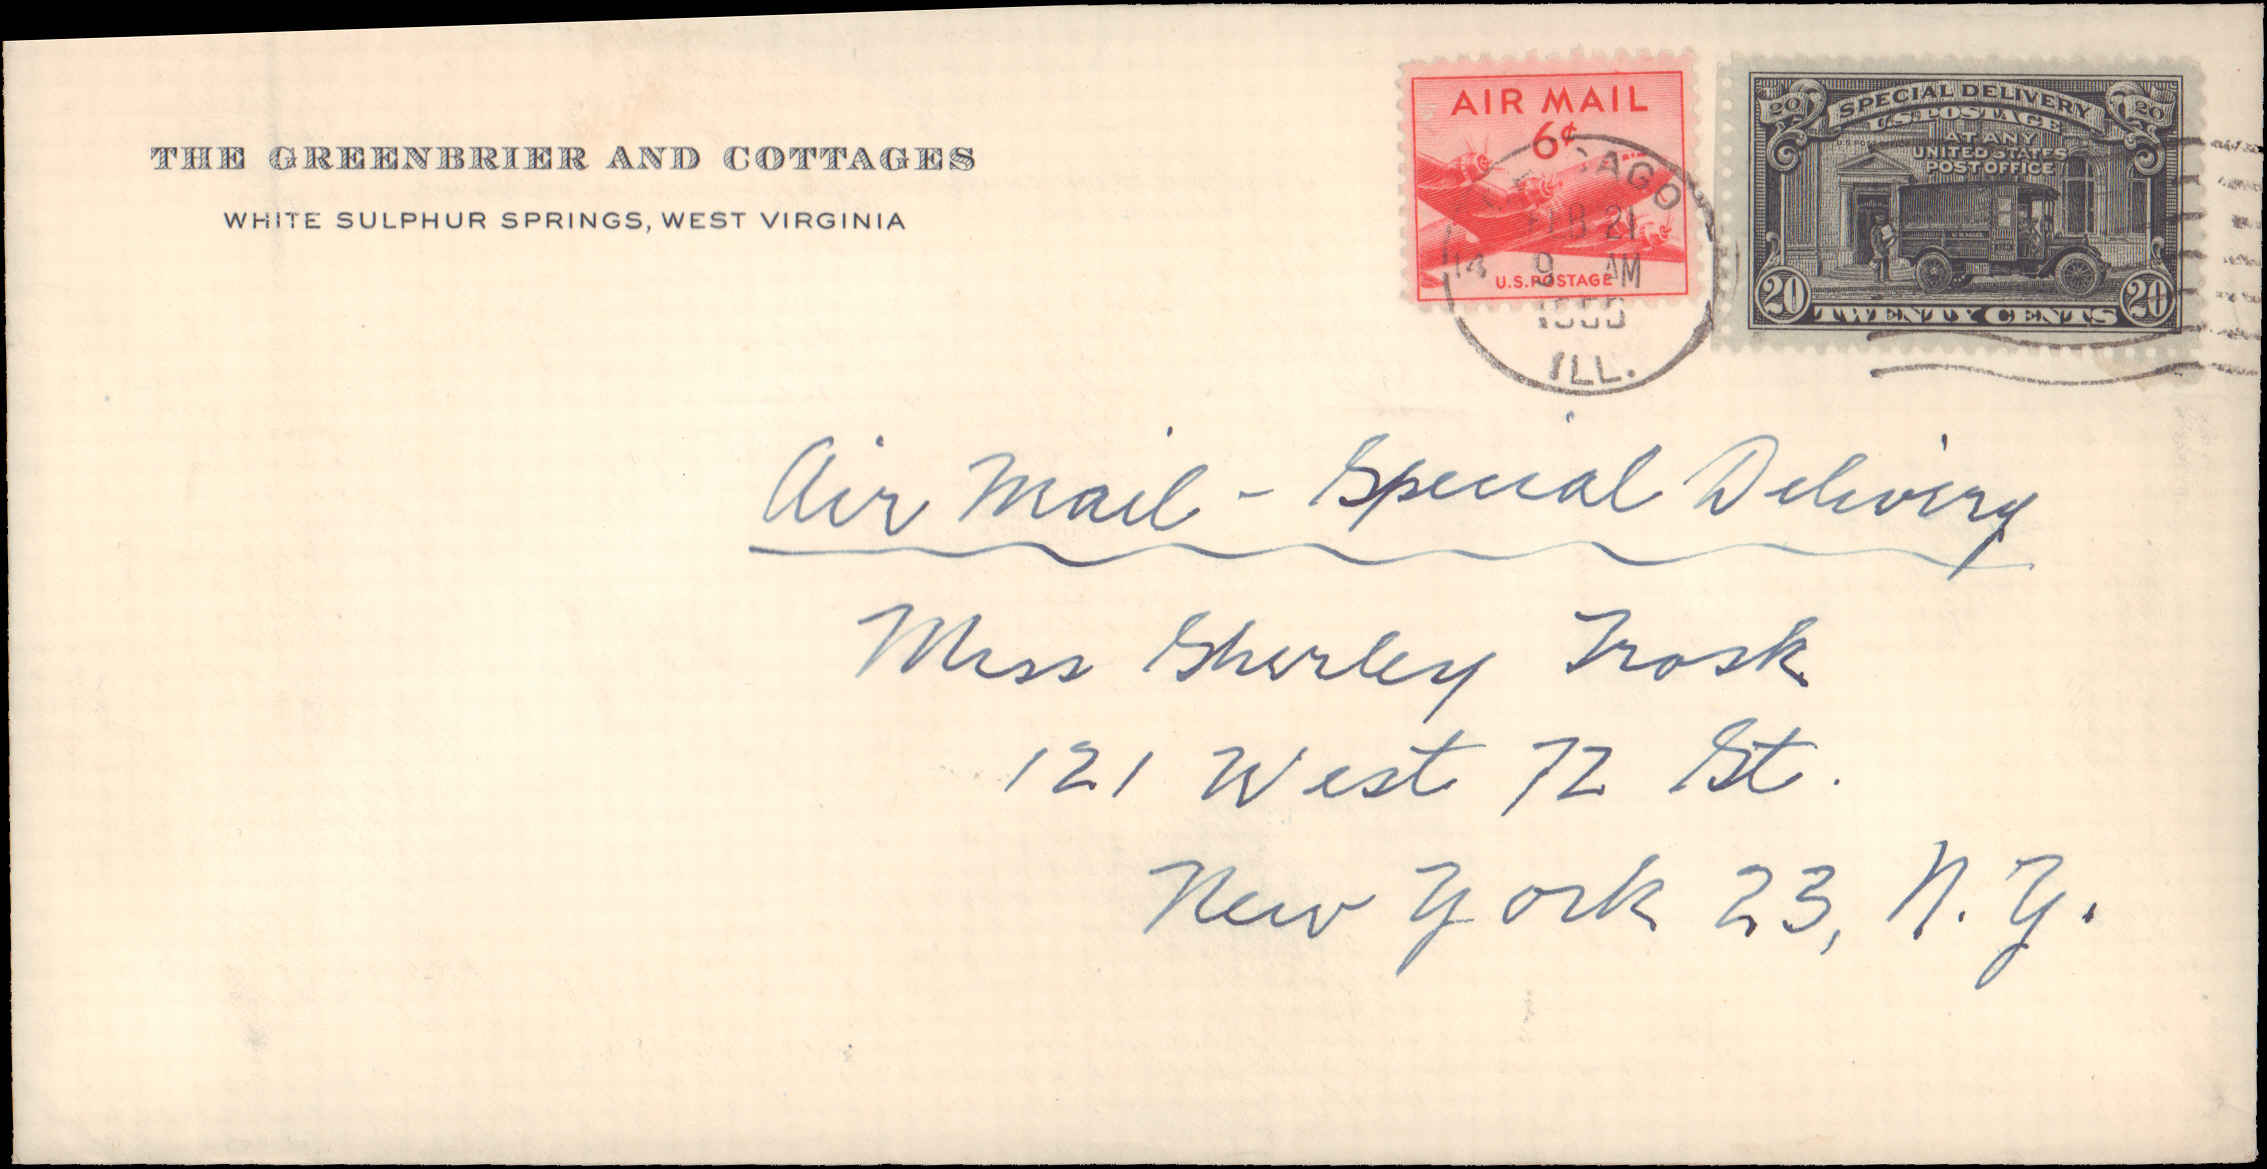 THE GREENBRIER AND COTTAGES
WHITE SULPHUR SPRINGS, WEST VIRGINIA
AIR MAIL
6¢
U.S. POSTAGE
SPECIAL DELIVERY
U.S. POSTAGE
20 20
AT ANY
UNITED STATES
POST OFFICE
20 TWENTY CENTS 20
CHICAGO
FEB 21
9 AM
ILL.
Air Mail - Special Delivery
Miss Shirley Trosk
121 West 72 St.
New York 23, N.Y.